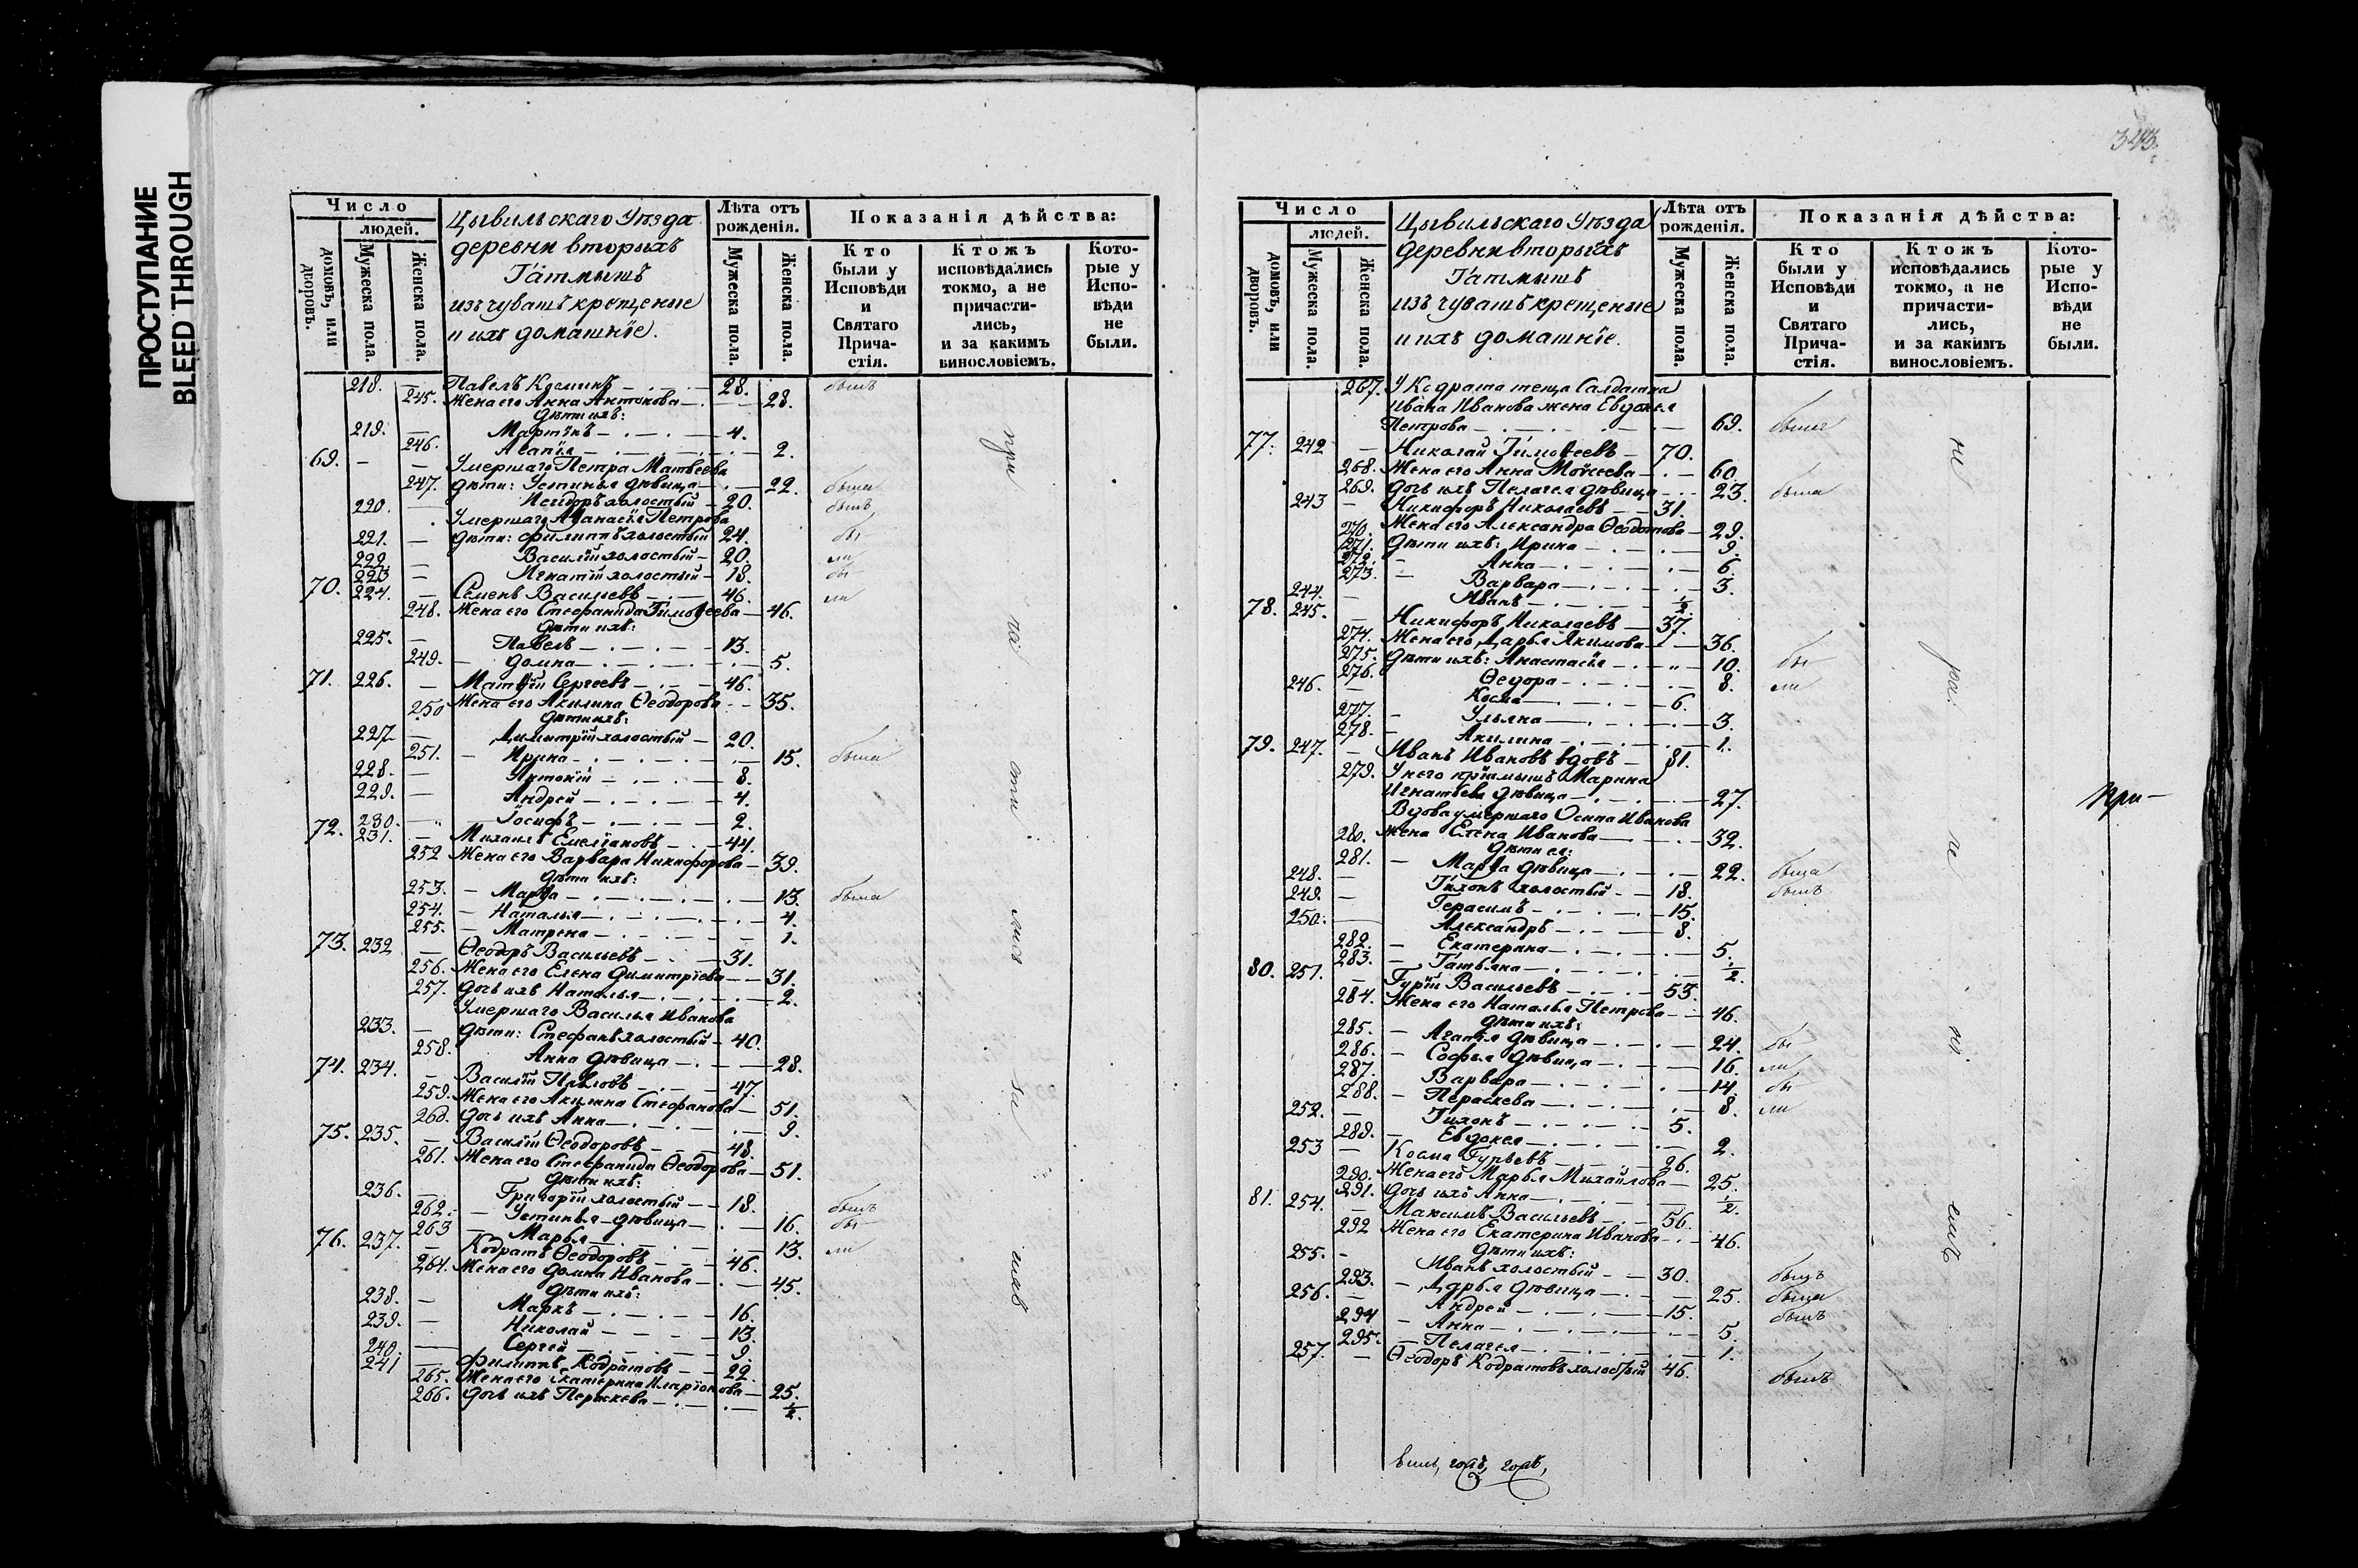 ПРОСТУПАНИЕ
BLEED THROUGH
Число
людей.
домовъ, или дворовъ.
Мужеска пола.
Женска пола.
Цывильскаго Уѣзда
деревни вторыхъ
Татмышъ
изъ чувашъ крещеные
и ихъ домашніе.
Лѣта отъ рожденія.
Мужеска пола.
Женска пола.
Показанія дѣйства:
Кто были у Исповѣди и Святаго Прича-стія.
Ктожъ исповѣдались токмо, а не причасти-лись, и за какимъ винословіемъ.
Кото-рые у Испо-вѣди не были.
218. — Павелъ 28. былъ
245. Жена его Анна Антонова 28.
Дѣти ихъ:
219. — Мартинъ 4.
246. Агапія 2.
69. — — Умершаго Петра Матвеева
247. дѣти: Устинья дѣвица 22. была
220. — Исидоръ холостый 20. былъ
Умершаго Аѳанасія Петрова
221. — дѣти: Филиппъ холостый 24. бы
222. — Василій холостый 20. ли
223 — Игнатій холостый 18. бы
70. 224. — Семенъ Васильевъ 46. ли
248. Жена его Стефанида Тимоѳеева 46.
Дѣти ихъ:
225. — Павелъ 13.
249. — Домна 5.
71. 226. — Матѳій Сергеевъ 46.
250 Жена его Акилина Ѳеодорова 35.
Дѣти ихъ:
227 — Димитрій холостый 20.
251. — Ирина 15. была
228. — Антоній 8.
229. — Андрей 4.
230. — Іосифъ 2.
72. 231. — Михаилъ Емеліановъ 44.
252 Жена его Варвара Никифорова 39.
Дѣти ихъ:
253. — Марѳа 13. была
254. — Наталья 4.
255. — Матрена 1.
73. 232 — Ѳеодоръ Васильевъ 31.
256. Жена его Елена Димитріева 31.
257. Дочь ихъ Наталья 2.
Умершаго Василья Иванова
233. — дѣти: Стефанъ холостый 40.
258. Анна дѣвица 28.
74. 234. — Василій Павловъ 47.
259. Жена его Акилина Стефанова 51.
260. Дочь ихъ Анна 9.
75. 235. — Василій Ѳеодоровъ 48.
261. Жена его Стефанида Ѳеодорова 51.
Дѣти ихъ:
236. — Григорій холостый 18. былъ
262. — Устинья дѣвица 16. бы
263 — Марья 13. ли
76. 237. — Кодратъ Ѳеодоровъ 46.
264. Жена его Домна Иванова 45.
Дѣти ихъ:
238. — Маркъ 16.
239. — Николай 13.
240. — Сергей 9.
241 — Филиппъ Кодратовъ 22.
265. Жена его Екатерина Иларіонова 25.
266. Дочь ихъ Параскева ½.
343.
Число
людей.
домовъ, или дворовъ.
Мужеска пола.
Женска пола.
Цывильскаго Уѣзда
деревни вторыхъ
Татмышъ
изъ чувашъ крещеные
и ихъ домашніе.
Лѣта отъ рожденія.
Мужеска пола.
Женска пола.
Показанія дѣйства:
Кто были у Исповѣди и Святаго Прича-стія.
Ктожъ исповѣдались токмо, а не причасти-лись, и за какимъ винословіемъ.
Кото-рые у Испо-вѣди не были.
267. У Кодрата теща Салдатка
Ивана Иванова жена Евдокея
Петрова 69. была
77. 242 — Николай Тимоѳеевъ 70.
268. Жена его Анна Мойсеева 60.
269. Дочь ихъ Пелагея дѣвица 23. была
243 — Никифоръ Николаевъ 31.
270. Жена его Александра Ѳеодотова 29.
271. Дѣти ихъ: Ирина 9.
272. — Анна 6.
273. — Варвара 3.
244. — Иванъ ½.
78. 245. — Никифоръ Николаевъ 37.
274. Жена его Дарья Якимова 36.
275. Дѣти ихъ: Анастасія 10. бы
276. Ѳедора 8. ли
246. — Косма 6.
277. — Ульяна 3.
278. — Акилина 1.
79. 247. — Иванъ Ивановъ вдовъ 81.
279. У него пріимышъ Марина
Игнатьева дѣвица 27.
Вдова умершаго Осипа Иванова
280. жена Елена Иванова 32.
Дѣти ея:
281. — Марѳа дѣвица 22. была
248. — Тихонъ холостый 18. былъ
249. — Герасимъ 15.
250. — Александръ 8.
282. — Екатерина 5.
283. — Татьяна ½.
80. 251. — Гурій Васильевъ 53.
284. Жена его Наталья Петрова 46.
Дѣти ихъ:
285. — Агапія дѣвица 24. бы
286. — Софья дѣвица 16. ли
287. Варвара 14. бы
288. — Параскева 8. ли
252. — Тихонъ 5.
289. — Евдокея 2.
253 — Косма Гурьевъ 26.
290. Жена его Марья Михайлова 25.
291. Дочь ихъ Анна ½.
81. 254. — Максимъ Васильевъ 56.
292 Жена его Екатерина Иванова 46.
Дѣти ихъ:
255. — Иванъ холостый 30. былъ
293. — Дарья дѣвица 25. была
256. — Андрей 15. былъ
294 — Анна 5.
295. — Пелагея 1.
257. — Ѳеодоръ Кодратовъ холостый 46. былъ
При—